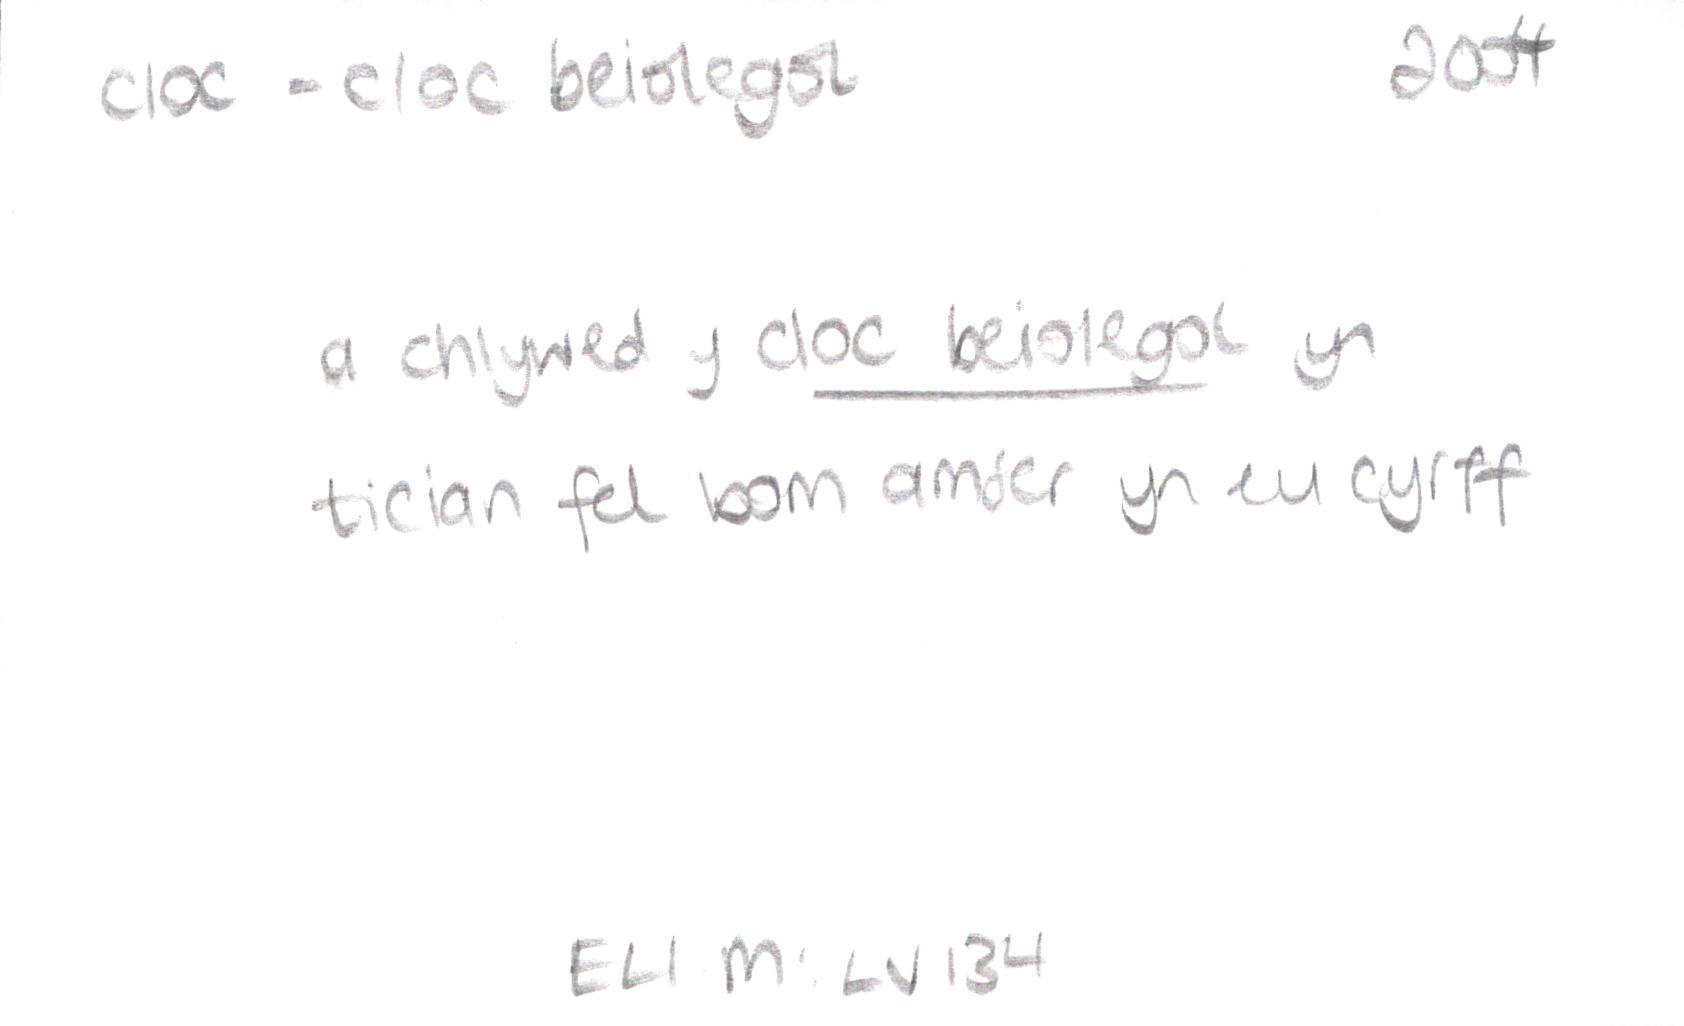 cloc - cloc beiolegol 2004
a chlywed y cloc beiolegol yn
tician fel bom amser yn eu cyrff
ELl M: LV 134